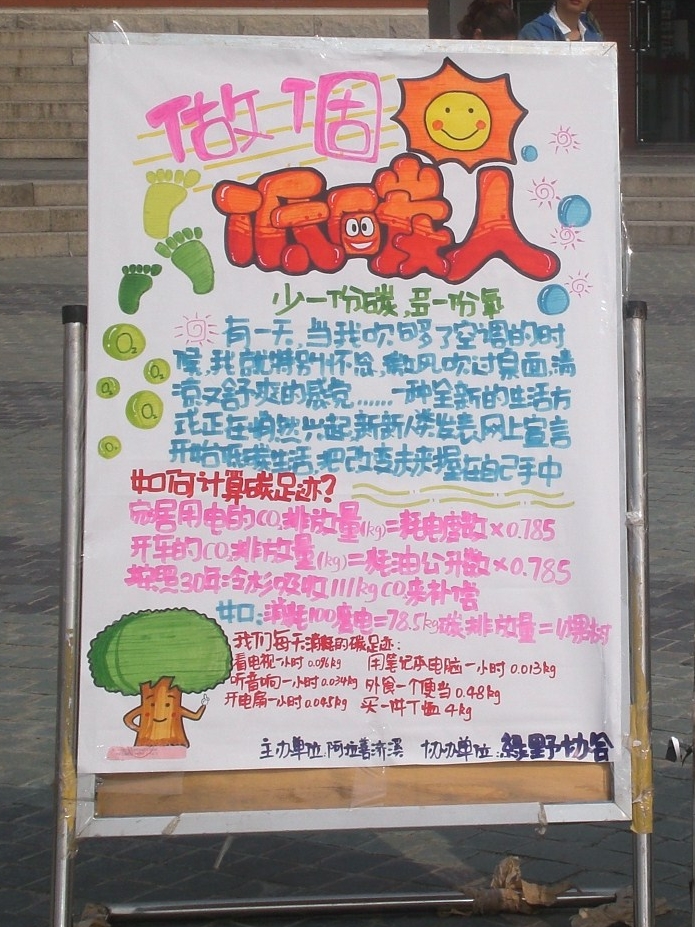 做個
低碳人
少一份碳,多一份氧
有一天,当我吹够了空调的时
候,我就特别怀念,微风吹过桌面,清
凉又舒爽的感觉……一种全新的生活方
式正在悄然兴起,新新人类发表网上宣言
开始低碳生活,把改变未来握在自己手中
O₂
O₂
O₂
O₂
O₂
如何计算碳足迹?
家居用电的CO₂排放量(kg)=耗电度数×0.785
开车的CO₂排放量(kg)=耗油公升数×0.785
按照30年冷杉吸收111kg CO₂来补偿
如:消耗100度电=78.5kg碳排放量=1棵树
我们每天消耗的碳足迹:
看电视一小时 0.096kg 用笔记本电脑一小时 0.013kg
听音响一小时 0.034kg 外食一个便当 0.48kg
开电扇一小时 0.045kg 买一件T恤 4kg
主办单位:阿拉善亦溪 协办单位:绿野协会